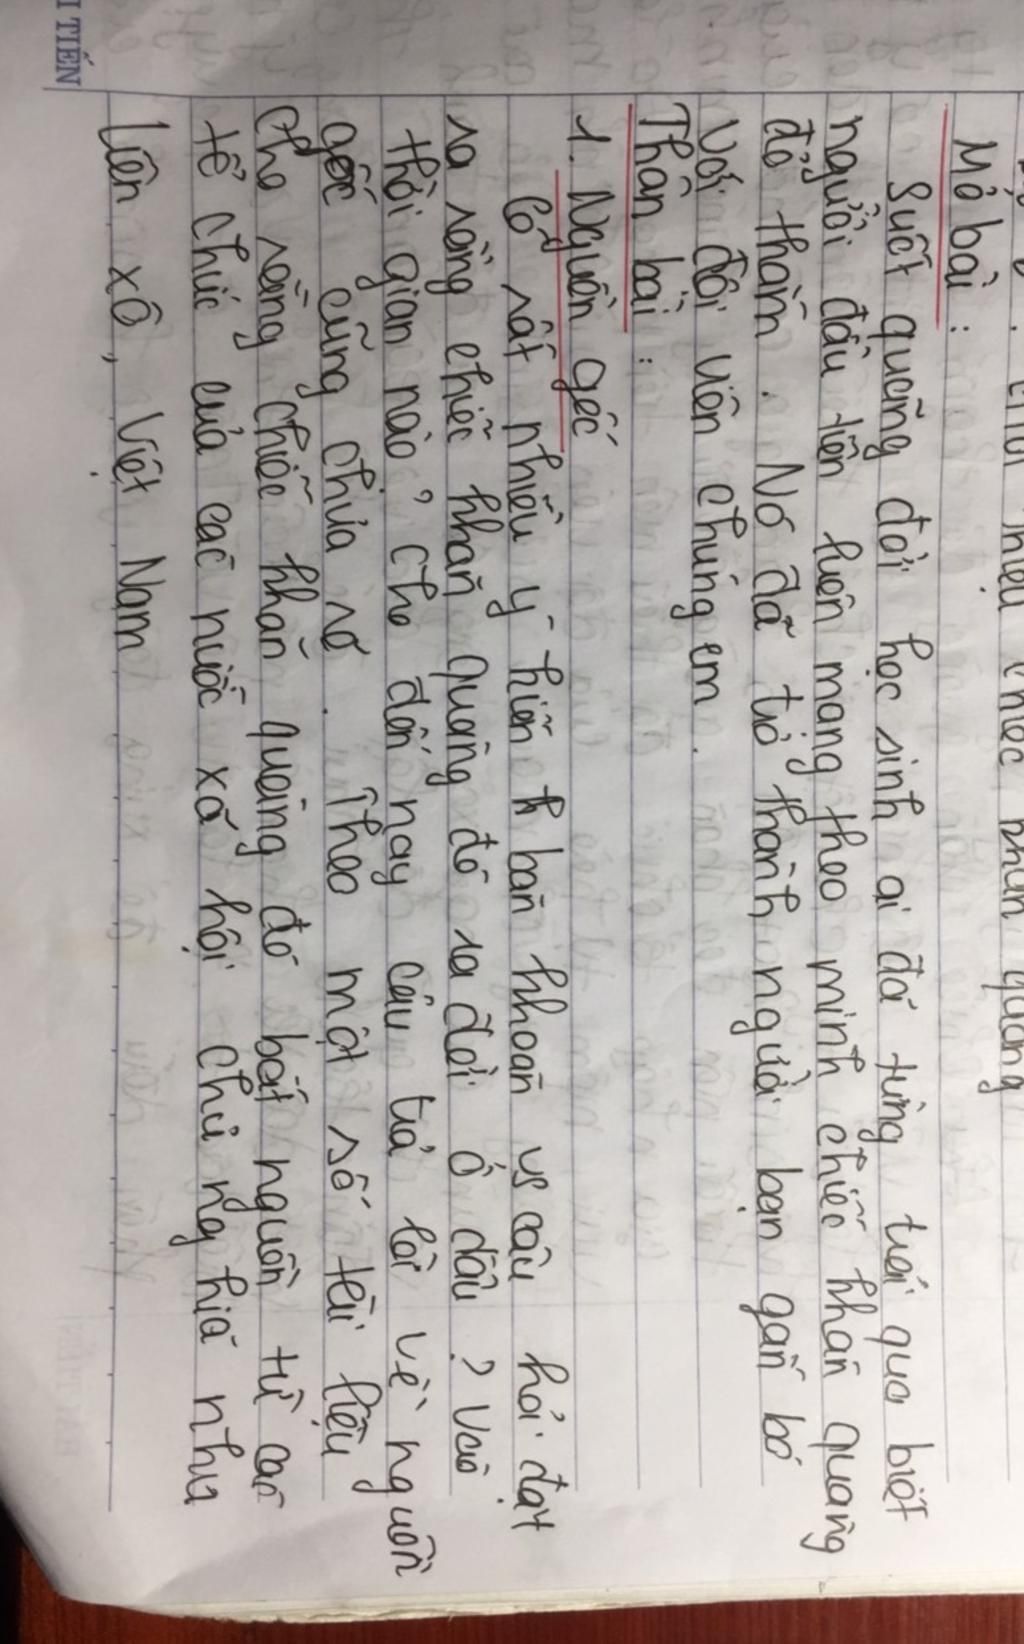 thiệu chiếc khăn quàng
Mở bài :
Suốt quãng đời học sinh ai đã từng trải qua biết
người đầu tiên luôn mang theo mình chiếc khăn quàng
đỏ thắm . Nó đã trở thành người bạn gắn bó
với đội viên chúng em .
Thân bài :
1. Nguồn gốc
Có rất nhiều ý kiến băn khoăn vs câu hỏi đặt
ra rằng chiếc khăn quàng đỏ ra đời ở đâu ? Vào
thời gian nào ? Cho đến nay câu trả lời về nguồn
gốc cũng chưa rõ . Theo một số tài liệu
cho rằng chiếc khăn quàng đỏ bắt nguồn từ các
tổ chức của các nước xã hội chủ nghĩa như
Liên xô , Việt Nam
I TIẾN